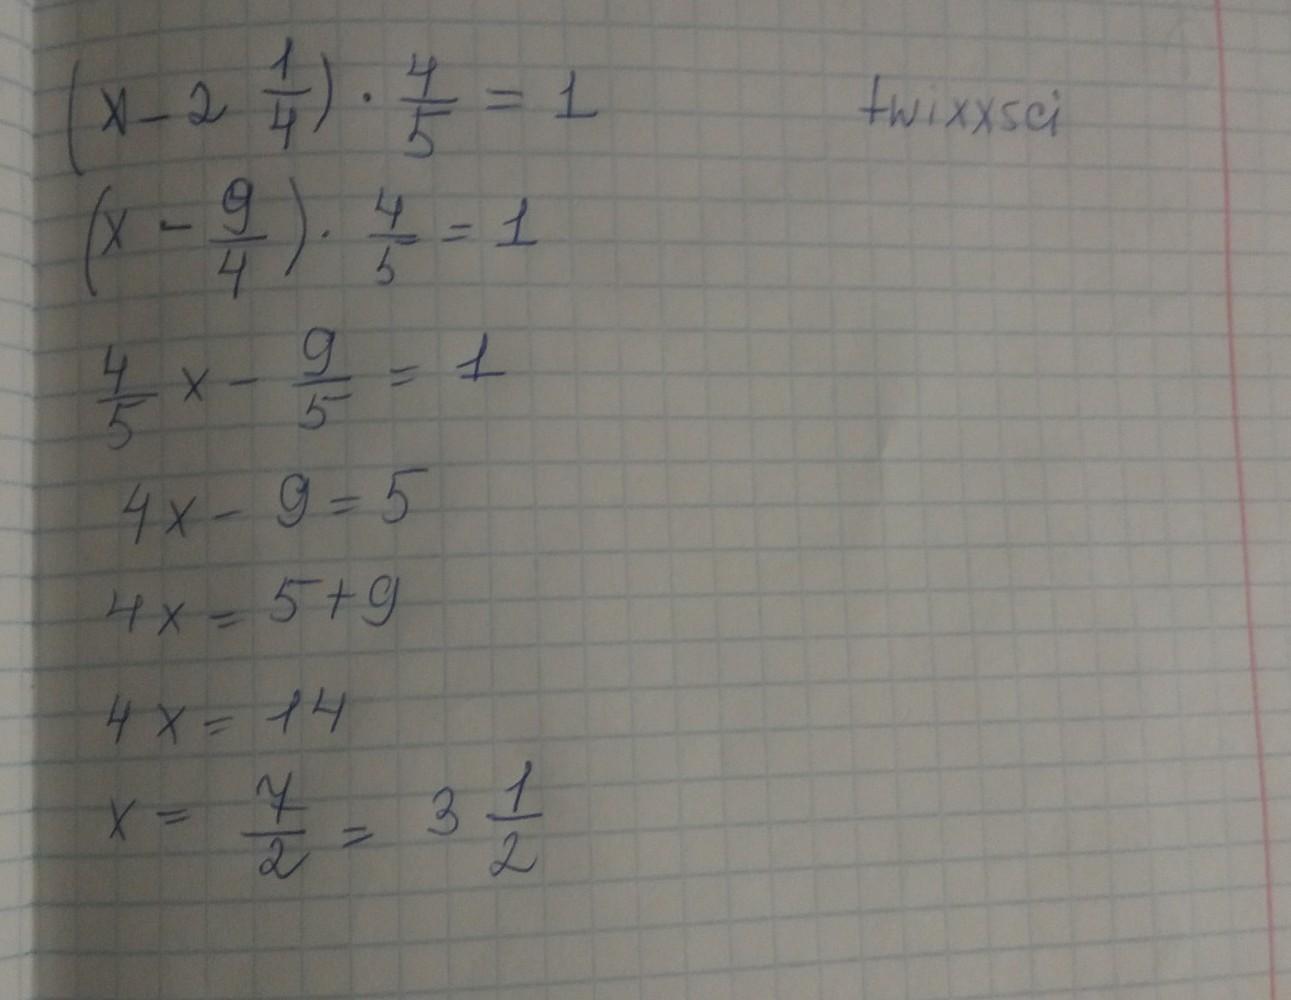 (x - 2 1/4) · 4/5 = 1
twixxsci
(x - 9/4) · 4/5 = 1
4/5 x - 9/5 = 1
4x - 9 = 5
4x = 5 + 9
4x = 14
x = 7/2 = 3 1/2